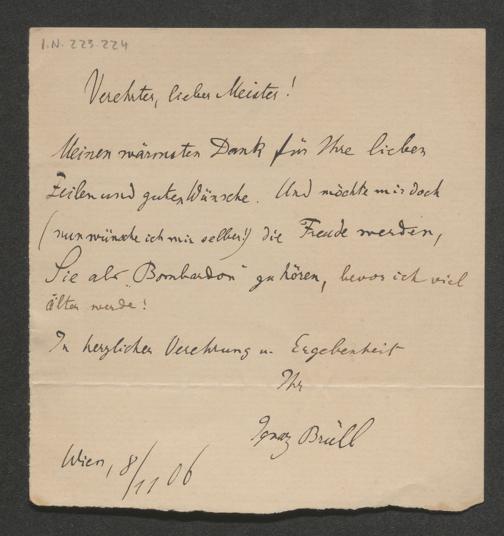 I.N. 223.224
Verehrter, lieber Meister!
Meinen wärmsten Dank für Ihre lieben
Zeilen und guten Wünsche. Und möchte mir doch
(nun wünsche ich mir selber!) die Freude werden,
Sie als „Bombardon" zu hören, bevor ich viel
älter werde!
In herzlicher Verehrung u. Ergebenheit
Ihr
Ignaz Brüll
Wien, 8/11 06